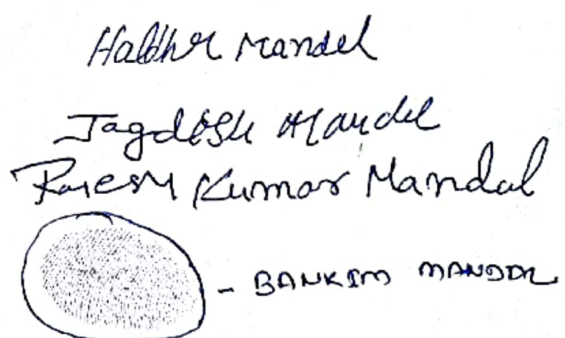 Haldhar Mandal
Jagdish Mandal
Rajesh Kumar Mandal
- BANKIM MANDAL